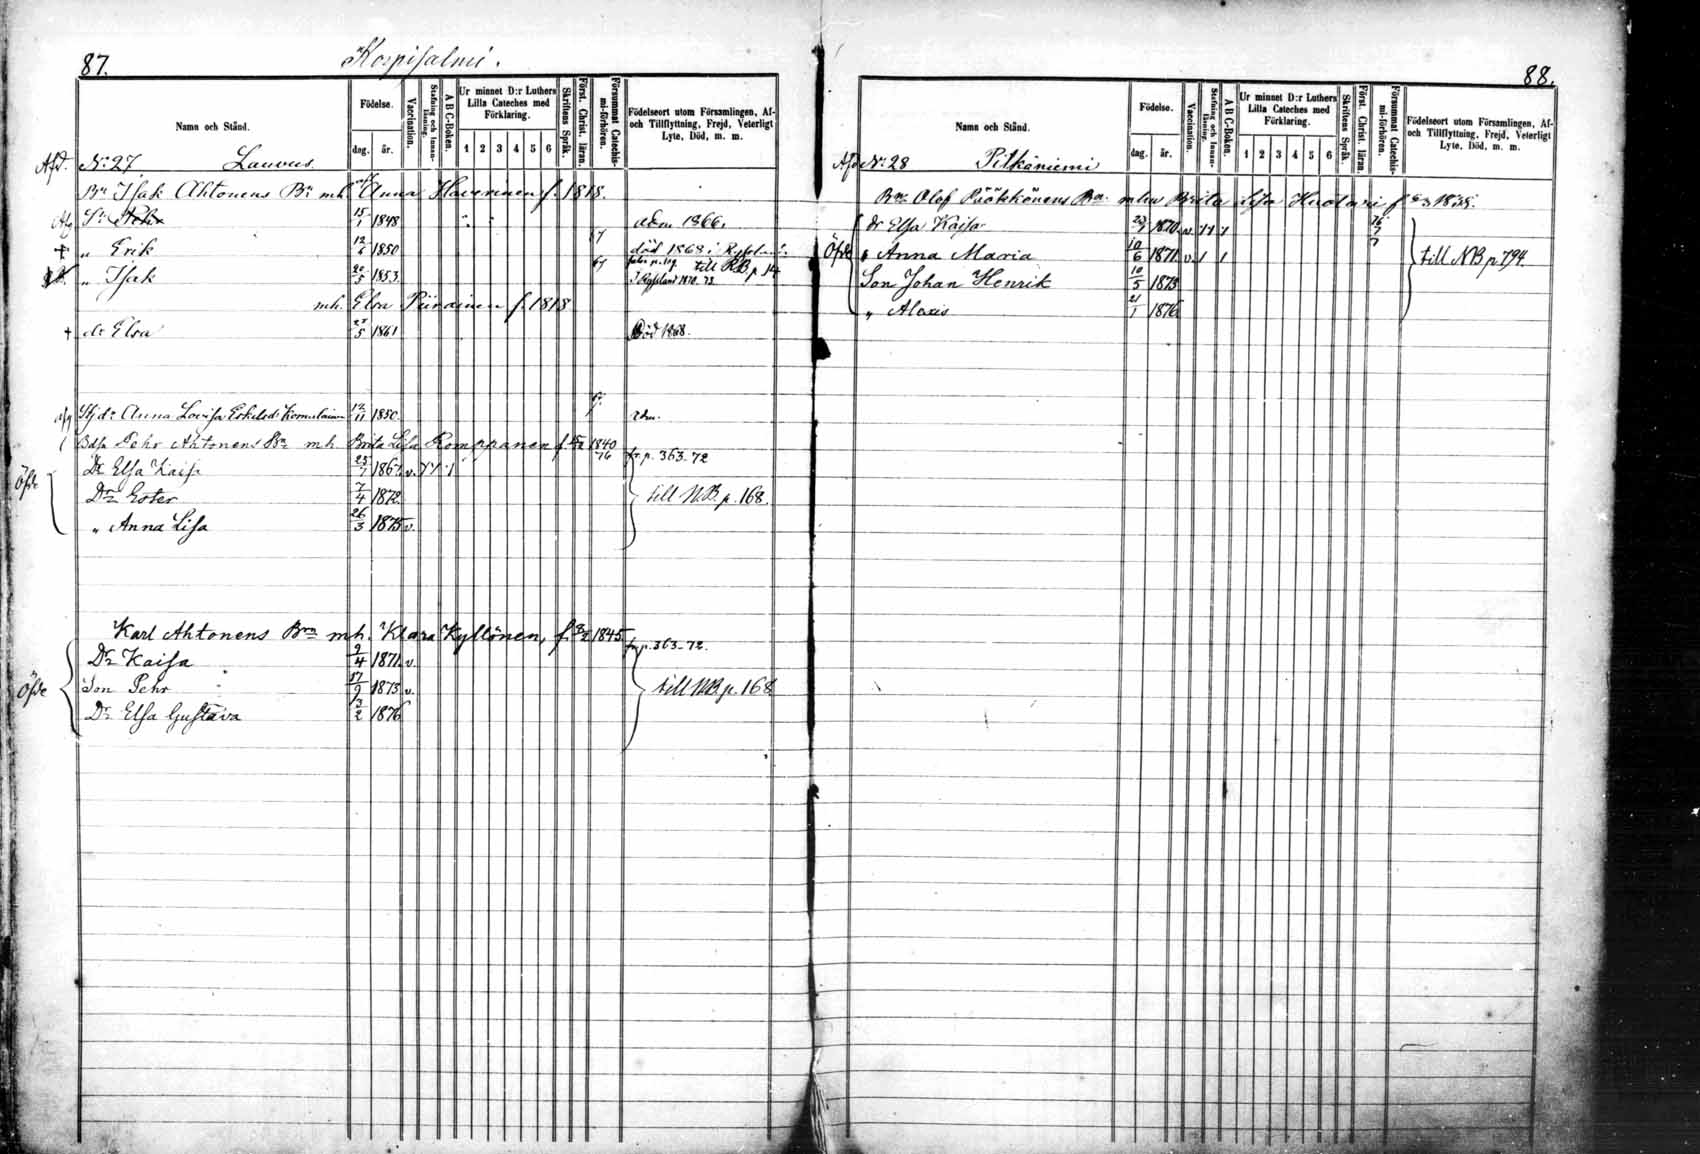 87.
Korpisalmi.
Namn och Stånd.
Födelse.
dag. år.
Vaccination.
Stafning och Innan-läsning.
A B C-Boken.
Ur minnet D:r Luthers Lilla Cateches med Förklaring.
1 2 3 4 5 6
Skriftens Språk.
Först. Christ. läran.
Försummat Catechis-mi-förhören.
Födelseort utom Församlingen, Af- och Tillflyttning, Frejd, Veterligt Lyte, Död, m. m.
Afd. No: 27 Lauvus
Bn Isak Ahtonens Bn mh. Anna Haverinen f. 1818.
Afg Sn Pehr 15/1 1848 adm. 1866.
+ „ Erik 12/6 1850 67 död 1868 i Ryssland.
„ Isak 20/5 1853. 67 till RB p. 14
I Ryssland 1870. 73
mh. Elsa Piirainen f. 1818
+ dr Elsa 1861 Död 1868.
afg Anna Lovisa Eskelsdr Komulainen 12/11 1850. adm.
Pehr Ahtonens Bn mh. Brita Lisa Romppanen f. 1840
76 fr. p. 363-72
Dr Elsa Kaisa 25/7 1867. v.
Öfde Dr Ester 7/4 1872. till NB. p. 168.
„ Anna Lisa 26/3 1875 v.
Karl Ahtonens Bn mh. Klara Kyllönen, f. 8/2 1845.
fr. p. 363-72.
Dr Kaisa 9/4 1871. v.
Öfde Son Pehr 17/9 1873 v. till NB p. 168
Dr Elsa Gustava 3/2 1876
88.
Namn och Stånd.
Födelse.
dag. år.
Vaccination.
Stafning och Innan-läsning.
A B C-Boken.
Ur minnet D:r Luthers Lilla Cateches med Förklaring.
1 2 3 4 5 6
Skriftens Språk.
Först. Christ. läran.
Försummat Catechis-mi-förhören.
Födelseort utom Församlingen, Af- och Tillflyttning, Frejd, Veterligt Lyte, Död, m. m.
Afd No: 28 Pitkäniemi
Bn Olof Pöökkönens Bn mhu Brita Lisa
dr Elsa Kaisa 1870. v. 76
Öfde „ Anna Maria 10/6 1871. v. 7 till NB p. 794.
Son Johan Henrik 10/5 1873
„ Alexis 21/1 1876